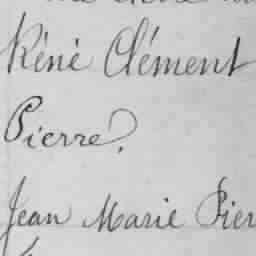 Réné Clément
Pierre.
Jean Marie Pier